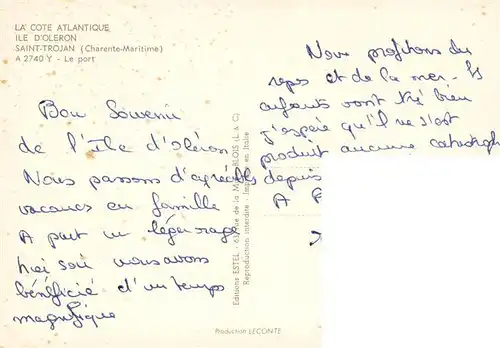 LA COTE ATLANTIQUE
ILE D'OLERON
SAINT-TROJAN (Charente-Maritime)
A 2740 Y - Le port
Bon Souvenir
de l'Ile d'oléron
Nous passons d'agréables
vacances en famille
A part un léger orage
hier soir nous avons
bénéficié d'un temps
magnifique
Nous profitons du
repos et de la mer. Les
enfants vont très bien
J'espère qu'il ne s'est
produit aucune catastrophe
depuis
A
Editions ESTEL - BLOIS (L. & C.)
Reproduction interdite - Imprimé en Italie
Production LECONTE